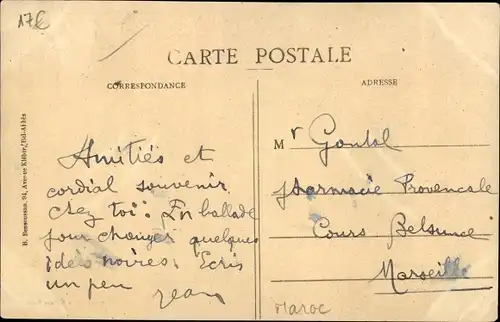 17€
CARTE POSTALE
CORRESPONDANCE
ADRESSE
Amitiés et
cordial souvenir
chez toi. En ballade
pour changer quelques
idées noires. Ecris
un peu
Jean
Mr
Pharmacie Provencale
Cours Belsunce
Marseille
Maroc